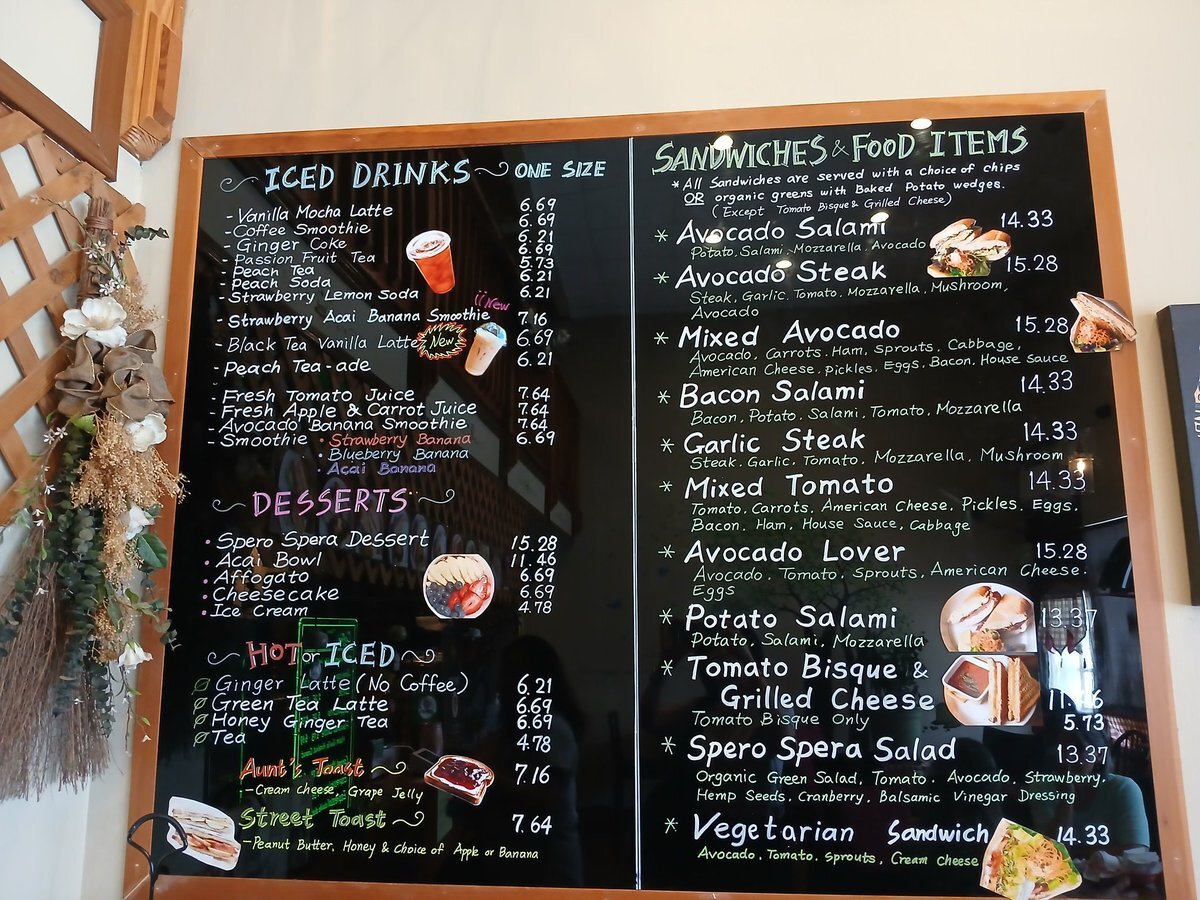 ICED DRINKS ONE SIZE
- Vanilla Mocha Latte 6.69
- Coffee Smoothie 6.69
- Ginger Coke 6.21
- Passion Fruit Tea 6.69
- Peach Tea 5.73
- Peach Soda 6.21
- Strawberry Lemon Soda 6.21
New
- Strawberry Acai Banana Smoothie 7.16
- Black Tea Vanilla Latte New 6.69
- Peach Tea-ade 6.21
- Fresh Tomato Juice 7.64
- Fresh Apple & Carrot Juice 7.64
- Avocado Banana Smoothie 7.64
- Smoothie • Strawberry Banana 6.69
• Blueberry Banana
• Acai Banana
DESSERTS
• Spero Spera Dessert 15.28
• Acai Bowl 11.46
• Affogato 6.69
• Cheesecake 6.69
• Ice Cream 4.78
HOT or ICED
Ginger Latte (No Coffee) 6.21
Green Tea Latte 6.69
Honey Ginger Tea 6.69
Tea 4.78
Aunt's Toast 7.16
- Cream cheese, Grape Jelly
Street Toast 7.64
- Peanut Butter, Honey & Choice of Apple or Banana
SANDWICHES & FOOD ITEMS
* All Sandwiches are served with a choice of chips
OR organic greens with Baked Potato wedges.
(Except Tomato Bisque & Grilled Cheese)
* Avocado Salami 14.33
Potato, Salami, Mozzarella, Avocado
* Avocado Steak 15.28
Steak, Garlic, Tomato, Mozzarella, Mushroom,
Avocado
* Mixed Avocado 15.28
Avocado, Carrots, Ham, Sprouts, Cabbage,
American Cheese, Pickles, Eggs, Bacon, House Sauce
* Bacon Salami 14.33
Bacon, Potato, Salami, Tomato, Mozzarella
* Garlic Steak 14.33
Steak, Garlic, Tomato, Mozzarella, Mushroom
* Mixed Tomato 14.33
Tomato, Carrots, American Cheese, Pickles, Eggs,
Bacon, Ham, House Sauce, Cabbage
* Avocado Lover 15.28
Avocado, Tomato, Sprouts, American Cheese,
Eggs
* Potato Salami 13.37
Potato, Salami, Mozzarella
* Tomato Bisque &
Grilled Cheese 11.46
Tomato Bisque Only 5.73
* Spero Spera Salad 13.37
Organic Green Salad, Tomato, Avocado, Strawberry,
Hemp Seeds, Cranberry, Balsamic Vinegar Dressing
* Vegetarian Sandwich 14.33
Avocado, Tomato, Sprouts, Cream Cheese